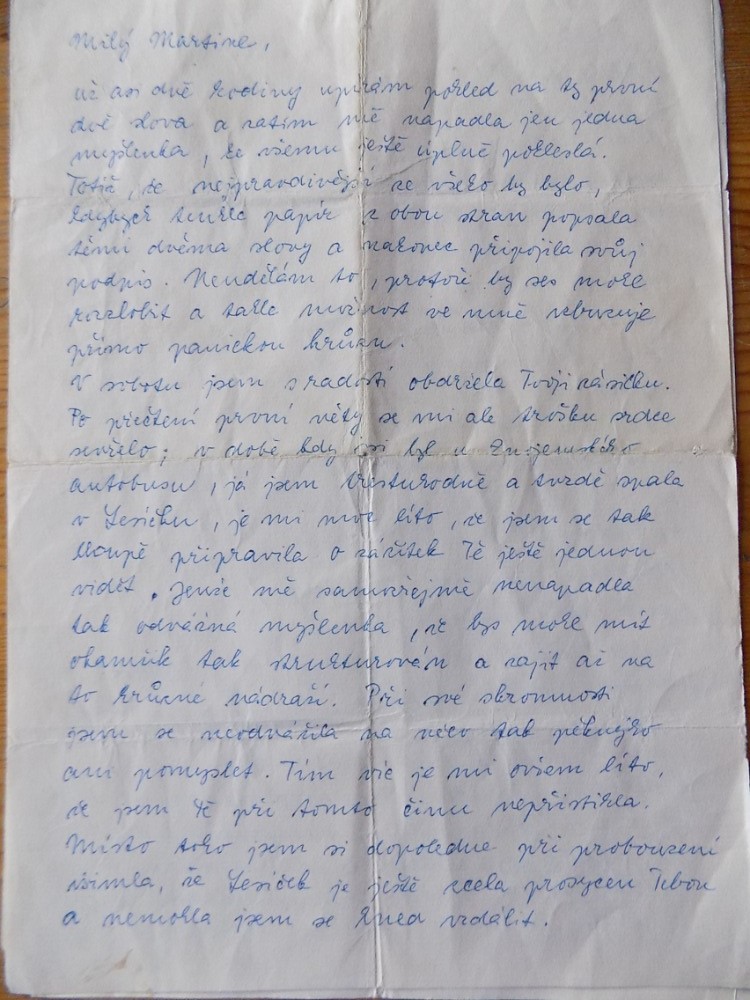 Milý Martine,
už asi dvě hodiny upírám pohled na ty první
dvě slova a zatím mě napadla jen jedna
myšlenka, ke všemu ještě úplně pokleslá.
Totiž, že nejpravdivější ze všeho by bylo,
kdybych tenhle papír z obou stran popsala
těmi dvěma slovy a nakonec připojila svůj
podpis. Neudělám to, protože by ses mohl
rozzlobit a tahle možnost ve mně vzbuzuje
přímo panickou hrůzu.
V sobotu jsem s radostí obdržela Tvoji zásilku.
Po přečtení první věty se mi ale trošku srdce
sevřelo; v době kdy jsi byl u Znojemského
autobusu, já jsem trestuhodně a tvrdě spala
v Lesíčku, je mi moc líto, že jsem se tak
hloupě připravila o zážitek Tě ještě jednou
vidět. Jenže mě samozřejmě nenapadla
tak odvážná myšlenka, že bys mohl mít
okamžik tak strukturován a zajít až na
to hrůzné nádraží. Při své skromnosti
jsem se neodvážila na něco tak pěknýho
ani pomyslet. Tím víc je mi ovšem líto,
že jsem Tě při tomto činu nepřistihla.
Místo toho jsem si dopoledne při probouzení
všimla, že Lesíček je ještě zcela prosycen Tebou
a nemohla jsem se hned vzdálit.